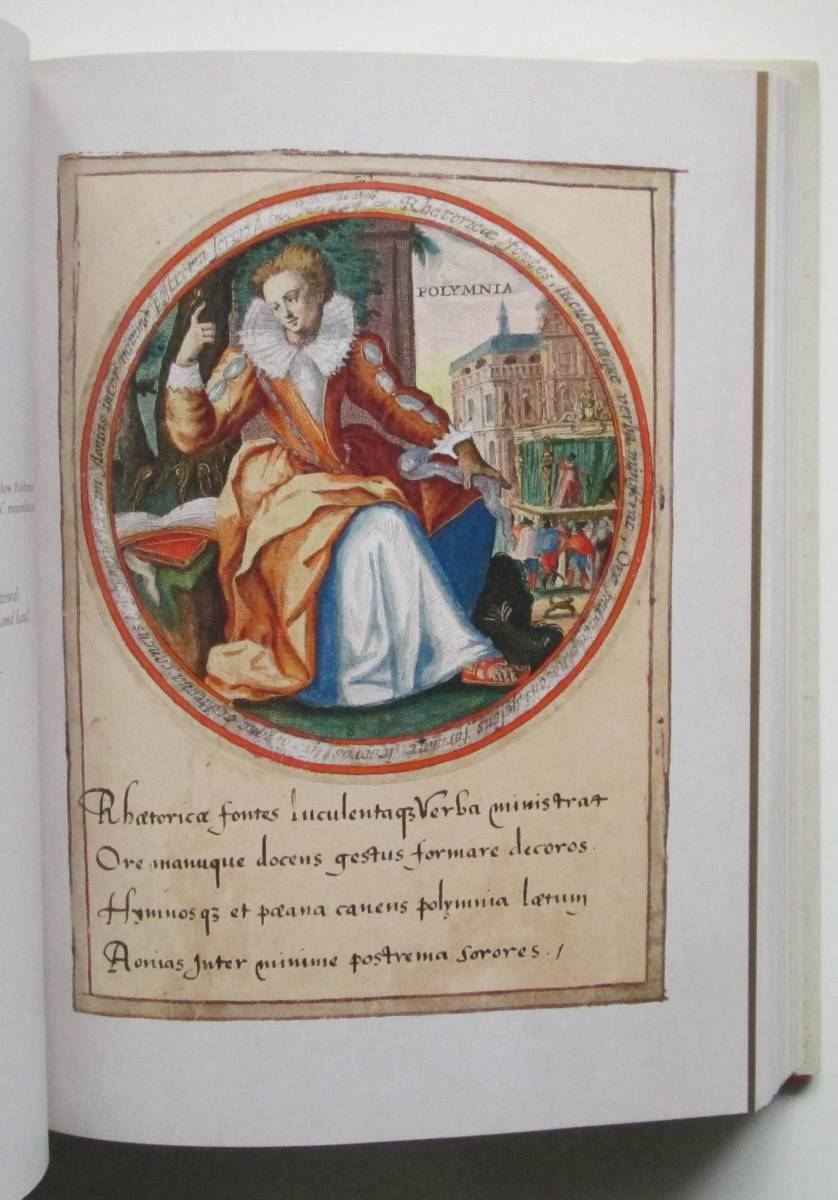 POLYMNIA
Rhetoricæ fontes, luculentaque verba ministrat, Ore manuque docens gestus formare decoros
Rhætoricæ fontes luculentaqꝫ Verba ministrat
Ore manuque docens gestus formare decoros.
Hymnosqꝫ et pæana canens polymnia lætum
Aonias Inter minime postrema sorores. /